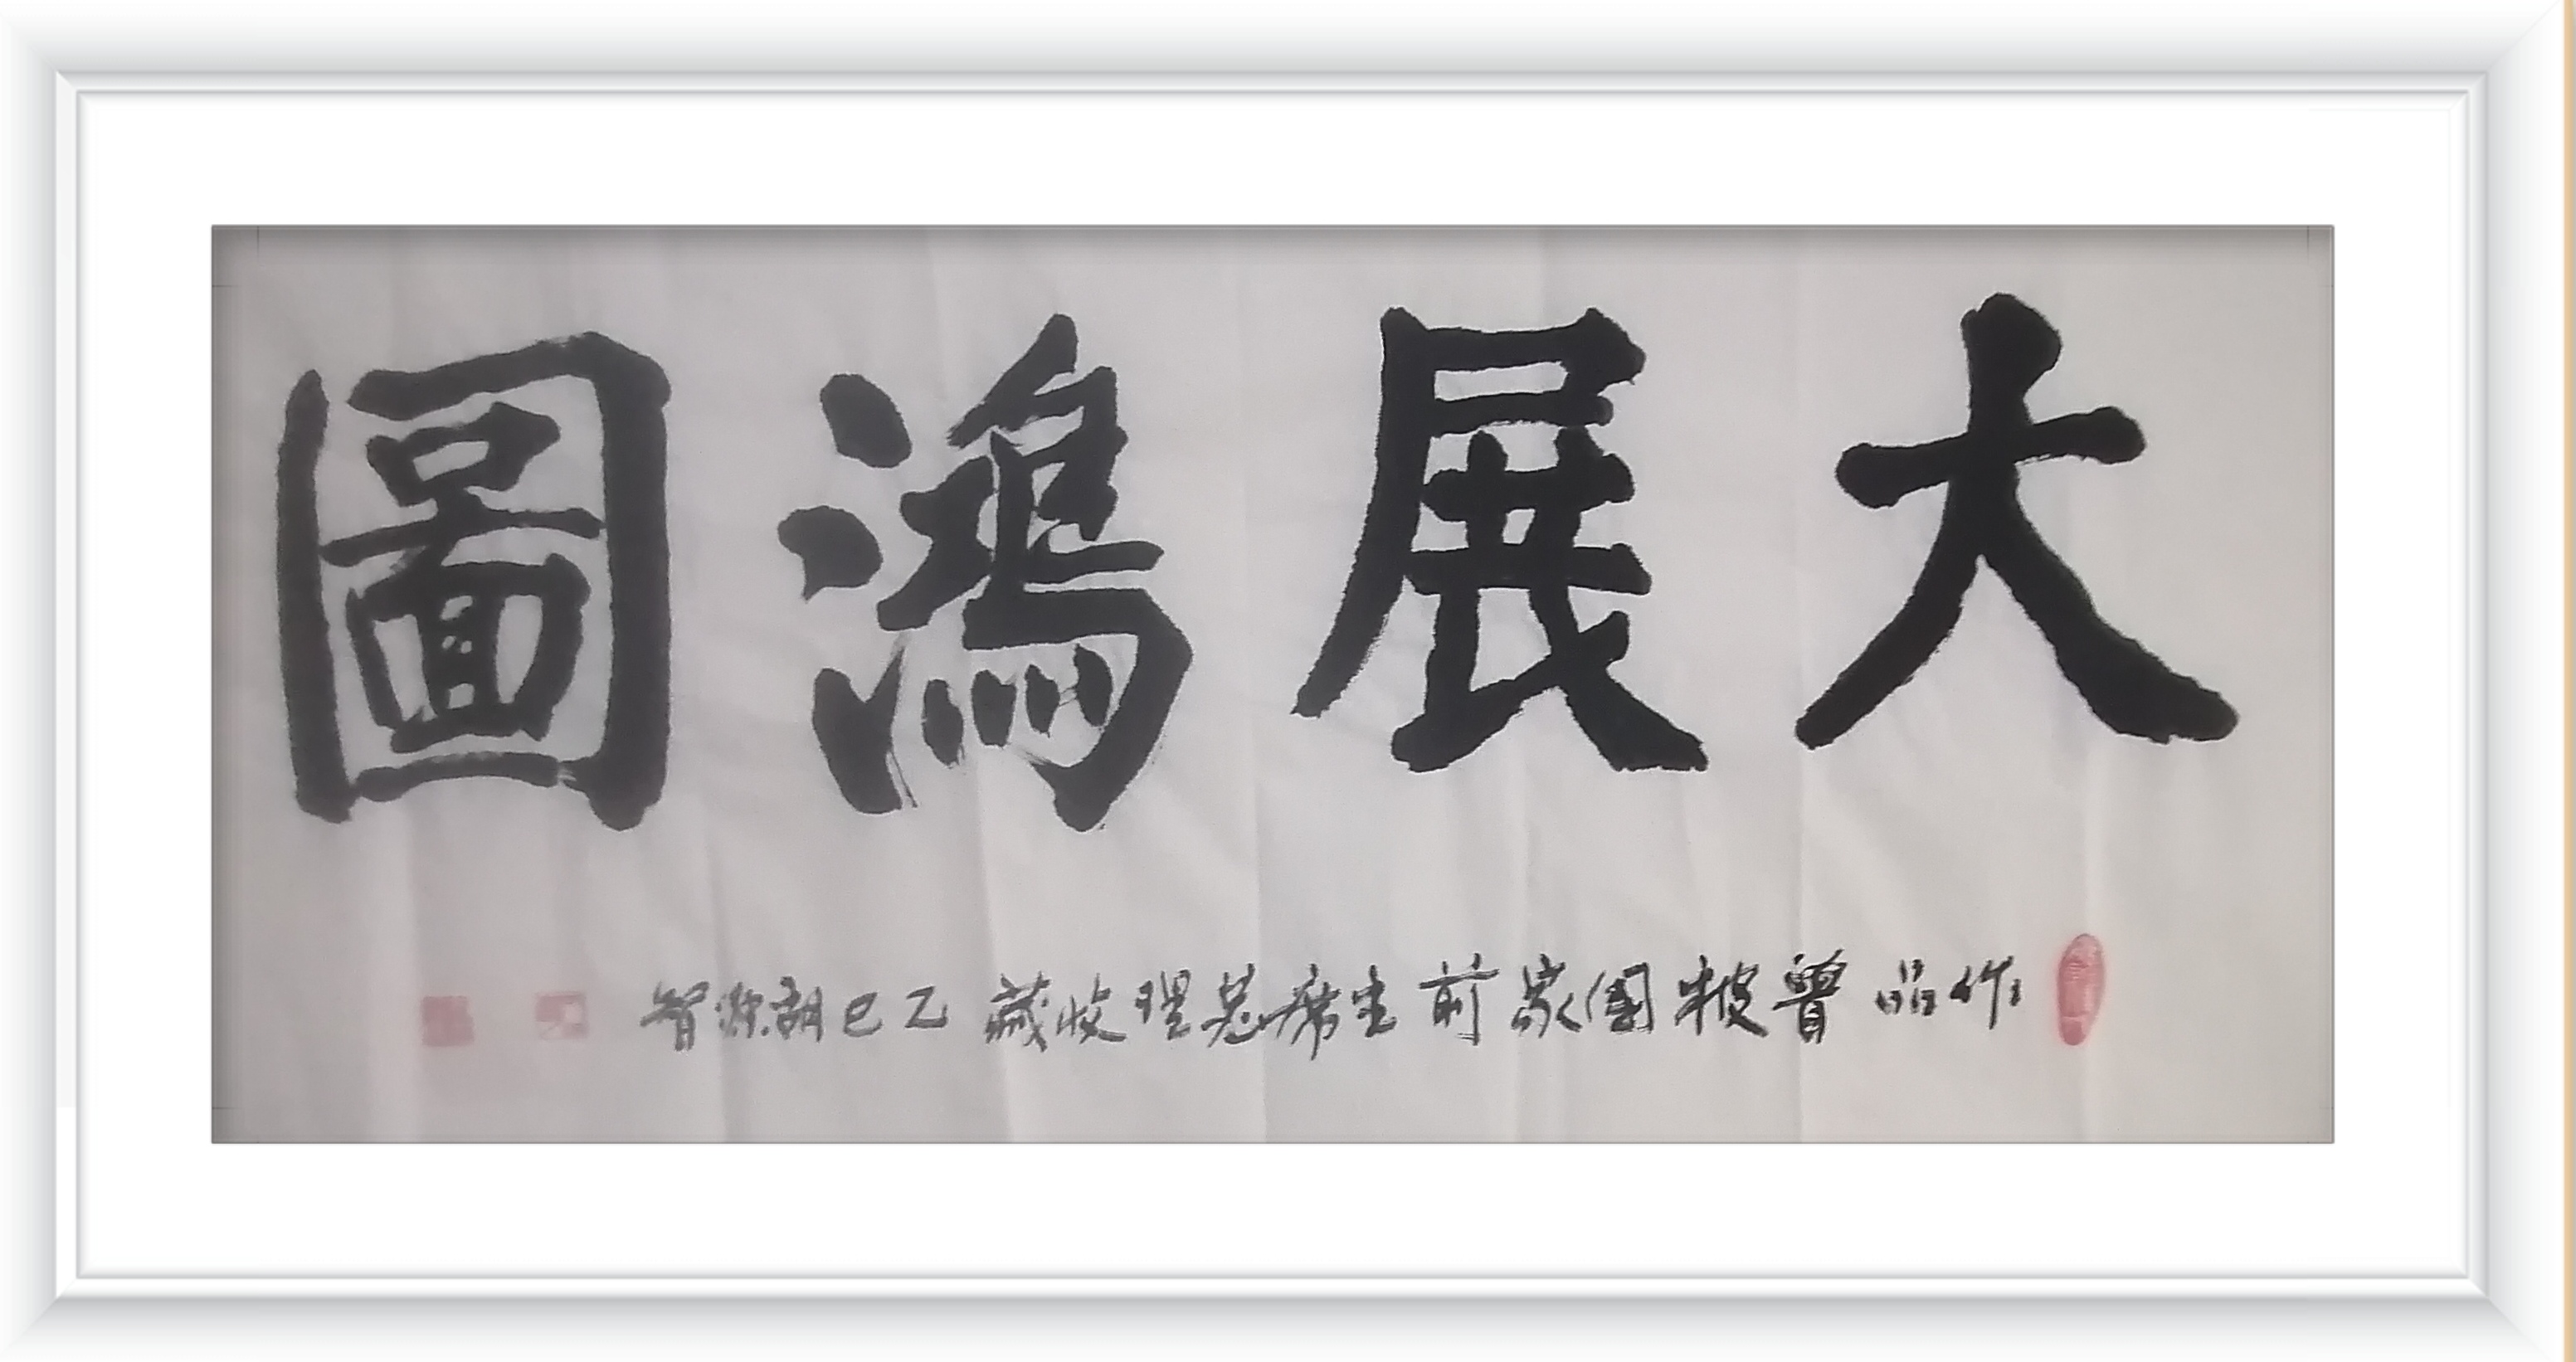 大展鴻圖
作品曾被國家前主席总理收藏 乙巳胡源智